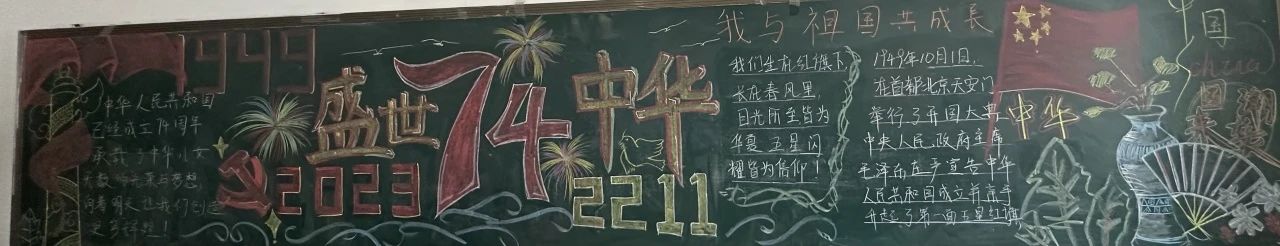 1949
中华人民共和国
已经成立74周年
承载了中华儿女
无数的光荣与梦想,
向着明天让我们创造
更多辉煌!
盛世
74
中华
2023
2211
我与祖国共成长
我们生在红旗下
长在春风里,
目光所至皆为
华夏 五星闪
耀皆为信仰!
1949年10月1日,
在首都北京天安门
举行了开国大典
中央人民政府主席
毛泽东庄严宣告中华
人民共和国成立并亲手
升起了第一面五星红旗
中华
国
china
国
潮
来
袭